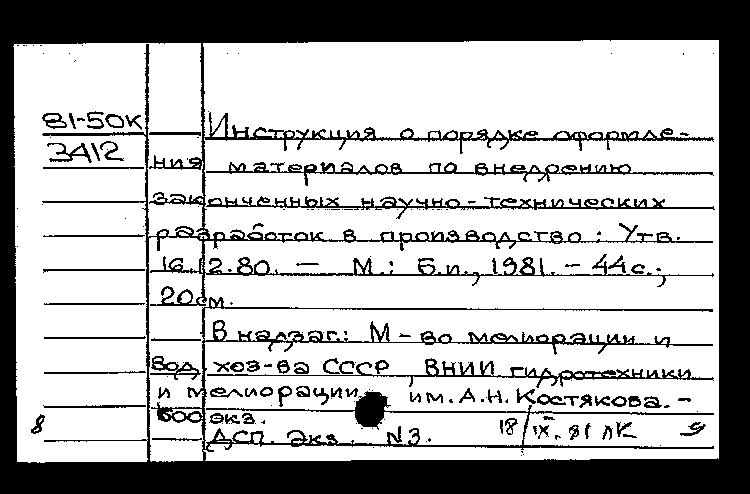 81-50К
3412
Инструкция о порядке оформле-
ния материалов по внедрению
законченных научно-технических
разработок в производство: Утв.
16.12.80. — М.: Б.и., 1981. - 44с.;
20см.
В надзаг.: М-во мелиорации и
вод. хоз-ва СССР, ВНИИ гидротехники
и мелиорации им. А.Н. Костякова. -
500 экз.
8 ДСП. Экз. N3. 18/IX. 81 ЛК